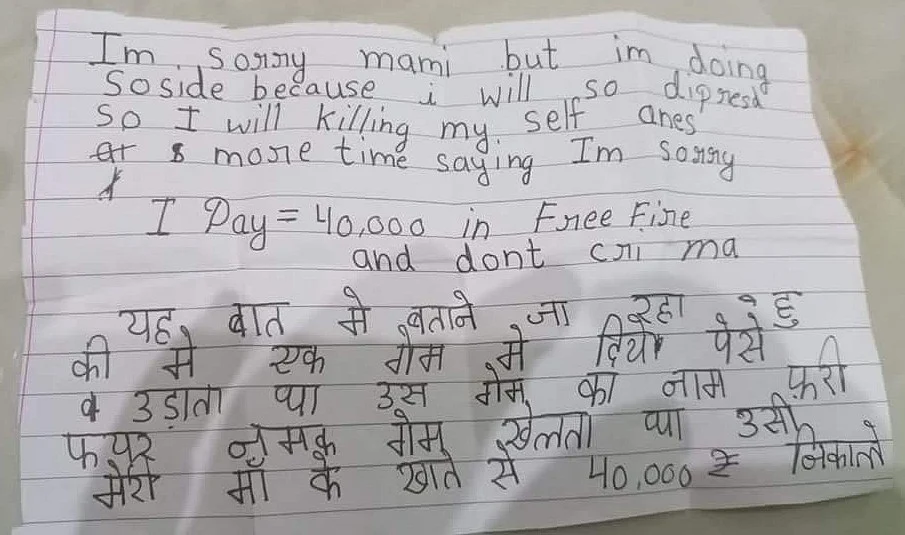 Im sorry mami but im doing
Soside because i will so dipresd
So I will killing my self anes
more time saying Im sorry
I Day = 40,000 in Free Fire
and dont cri ma
यह बात मे बताने जा रहा हु
की मे एक गेम मे दिये पैसे
उड़ाता था उस गेम का नाम फ़री
फयर नमक गेम खेलता था उसी
मेरी माँ के खाते से 40,000 ₹ निकाले